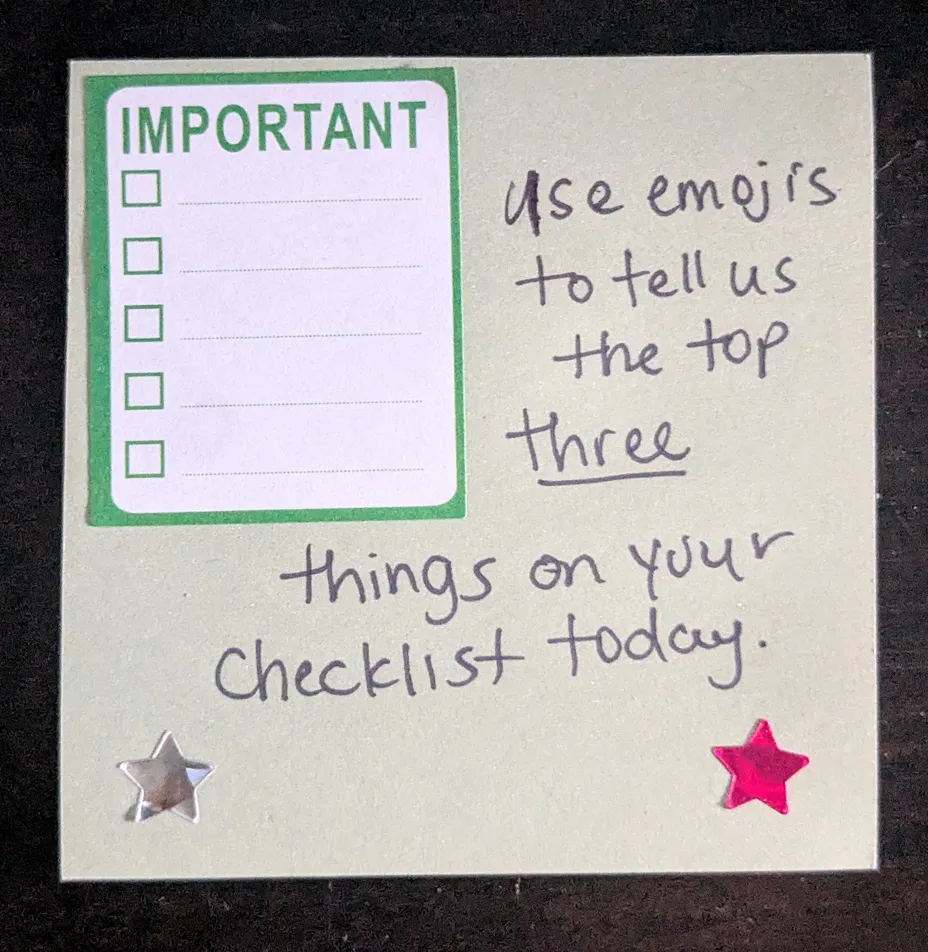 IMPORTANT
use emojis
to tell us
the top
three
things on your
checklist today.